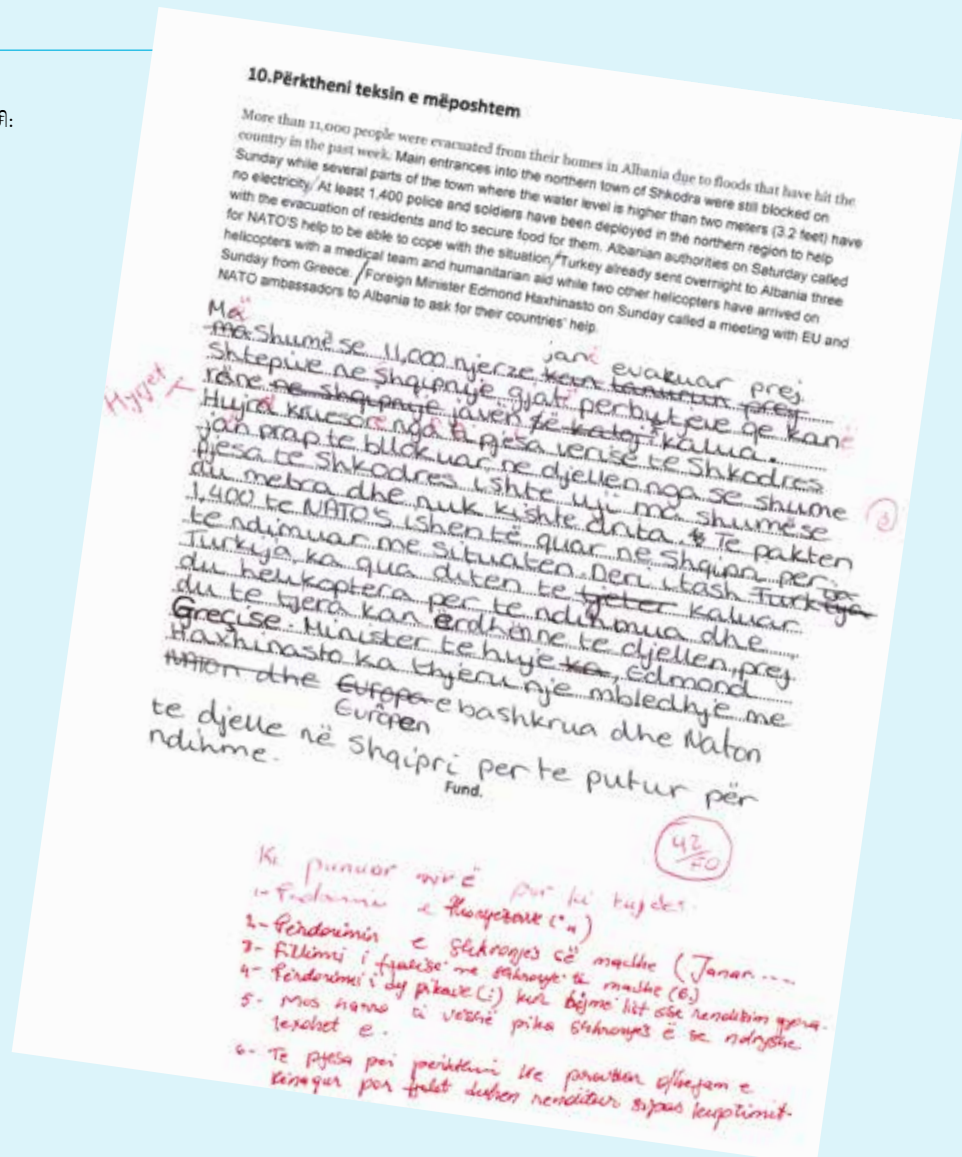 10.Përktheni teksin e mëposhtem
More than 11,000 people were evacuated from their homes in Albania due to floods that have hit the
country in the past week. Main entrances into the northern town of Shkodra were still blocked on
Sunday while several parts of the town where the water level is higher than two meters (3.2 feet) have
no electricity. At least 1,400 police and soldiers have been deployed in the northern region to help
with the evacuation of residents and to secure food for them. Albanian authorities on Saturday called
for NATO'S help to be able to cope with the situation. Turkey already sent overnight to Albania three
helicopters with a medical team and humanitarian aid while two other helicopters have arrived on
Sunday from Greece. Foreign Minister Edmond Haxhinasto on Sunday called a meeting with EU and
NATO ambassadors to Albania to ask for their countries' help.
Më
ma Shumë se 11,000 njerze janë evakuar prej
Shtepive ne Shqipnije gjatë perbyteve qe kanë
rëne ne shqipnije javen kalua.
Hyrjet
Hujra kruesore nga pjesa verise te Shkodres
jan prap te bllokuar ne djellen nga se shume
pjesa te Shkodres ishte uji ma shumë se
du metra dhe nuk kishte drita. Te pakten
1,400 te NATO'S ishen të quar ne Shqipri per
te ndimuar me situaten. Deri i tash
Turkija ka qua diten te tjeter kaluar
du helikoptera per te ndihmua dhe
du te tjera kan erdhënne te djellen, prej
Greçise. Minister te huje ka, Edmond
Haxhinasto ka thjeru nje mbledhje me
NATOn dhe Europa e bashkrua dhe Naton
Europen
te djelle në Shqipri per te putur për
ndihme.
Fund.
42/50
Ki punuar mirë por ki kujdes.
1- e thonjezave (" „)
2- Përdorimin e Shkronjes së madhe (Janar ....
3- Fillimi i fjalisë me shkronje të madhe (6.)
4- Përdorimi i dy pikave (:) kur bëjme list ose renditim gjera.
5- Mos harro ti vëshë pika shkronjes ë se ndryshe
lexohet e.
6- Te pjesa per perkthim
por fjalet duhen renditur sipas kuptimit.